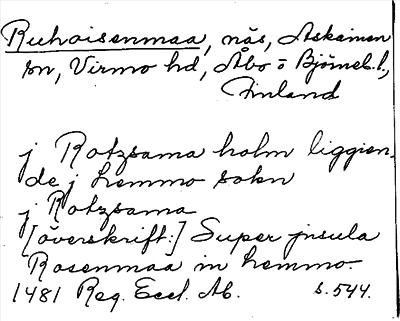 Ruhaisenmaa, näs, Askainen
sn, Virmo hd, Åbo o Björneb. l.,
Finland
j Rotzsama holm liggien-
de j Lemmo sokn
j Rotzsama
[överskrift:] Super jnsula
Rosenmaa in Lemmo.
1481 Reg. Eccl. Ab. s. 544.